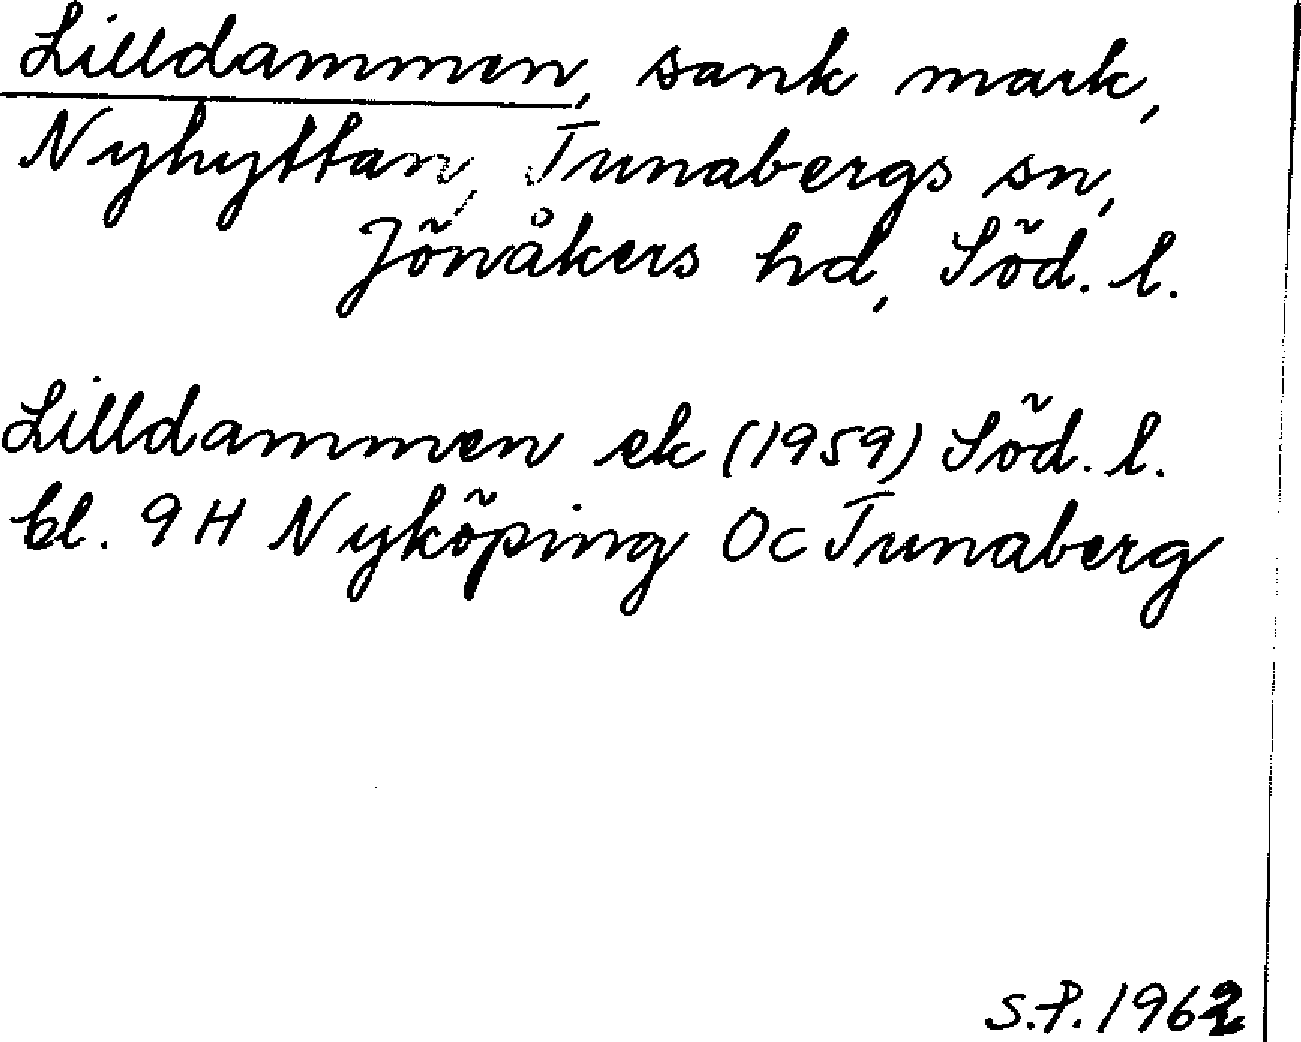 Lilldammen, sank mark,
Nyhyttan, Tunabergs sn,
Jönåkers hd, Söd. l.
Lilldammen ek (1959) Söd. l.
bl. 9H Nyköping Oc Tunaberg
S.P. 1962